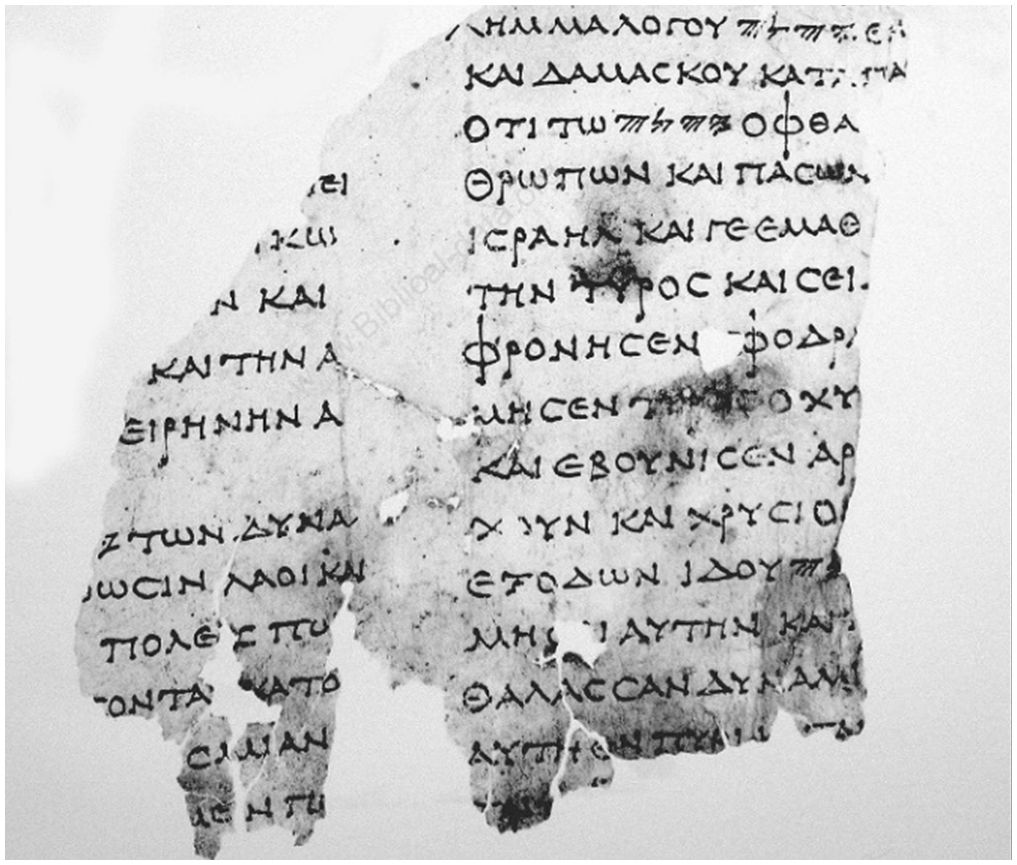 ΕΙ
ΚΩ
Ν ΚΑΙ
ΚΑΙ ΤΗΝ Α
ΕΙΡΗΝΗΝ Α
ΤΩΝ ΔΥΝΑ
ΩϹΙΝ ΛΑΟΙ ΚΑΙ
ΠΟΛΕ Ϲ ΠΟ
ΟΝΤΑ ΚΑΤΟ
ΑΝ
ΛΗΜΜΑ ΛΟΓΟΥ 𐤉𐤄𐤅𐤄 ΕΝ
ΚΑΙ ΔΑΜΑϹΚΟΥ ΚΑΤΑΠΑ
ΟΤΙ ΤΩ 𐤉𐤄𐤅𐤄 ΟΦΘΑ
ΘΡΩΠΩΝ ΚΑΙ ΠΑϹΩΝ
ΙϹΡΑΗΛ ΚΑΙ ΓΕ ΕΜΑΘ
ΤΗΝ ΤΥΡΟϹ ΚΑΙ ϹΕΙ
ΦΡΟΝΗϹΕΝ ΦΟΔΡΑ
ΜΗϹΕΝ ΤΥΡΟϹ ΟΧΥ
ΚΑΙ ΕΒΟΥΝΙϹΕΝ ΑΡ
Χ ΟΥΝ ΚΑΙ ΧΡΥϹΙΟ
ΕΞΟΔΩΝ ΙΔΟΥ
ΜΗ ΑΥΤΗΝ ΚΑΙ
ΘΑΛΑϹϹΑΝ ΔΥΝΑΜΙ
ΑΥΤΗ ΕΝ ΠΥΡΙ